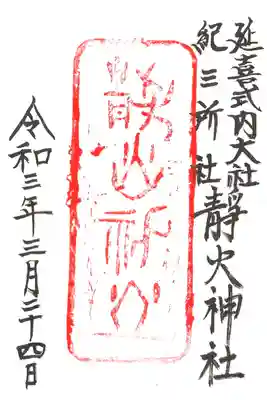 延喜式内大社
紀三所社
静火神社
令和三年三月二十四日